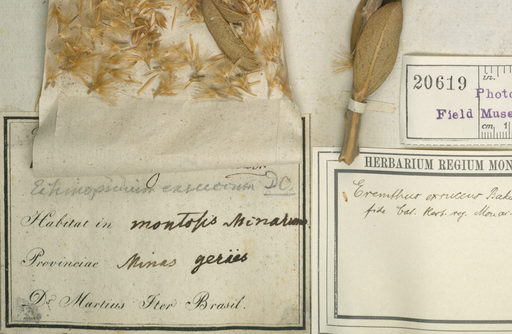 DC
Habitat in montosis Minarum.
Provinciae Minas geraës
Dr Martius Iter Brasil.
20619
in.
Photo
Field Muse
cm. 1
HERBARIUM REGIUM MON
Eremthus exsuccus Bake
fide Cat. Herb. reg. Monac